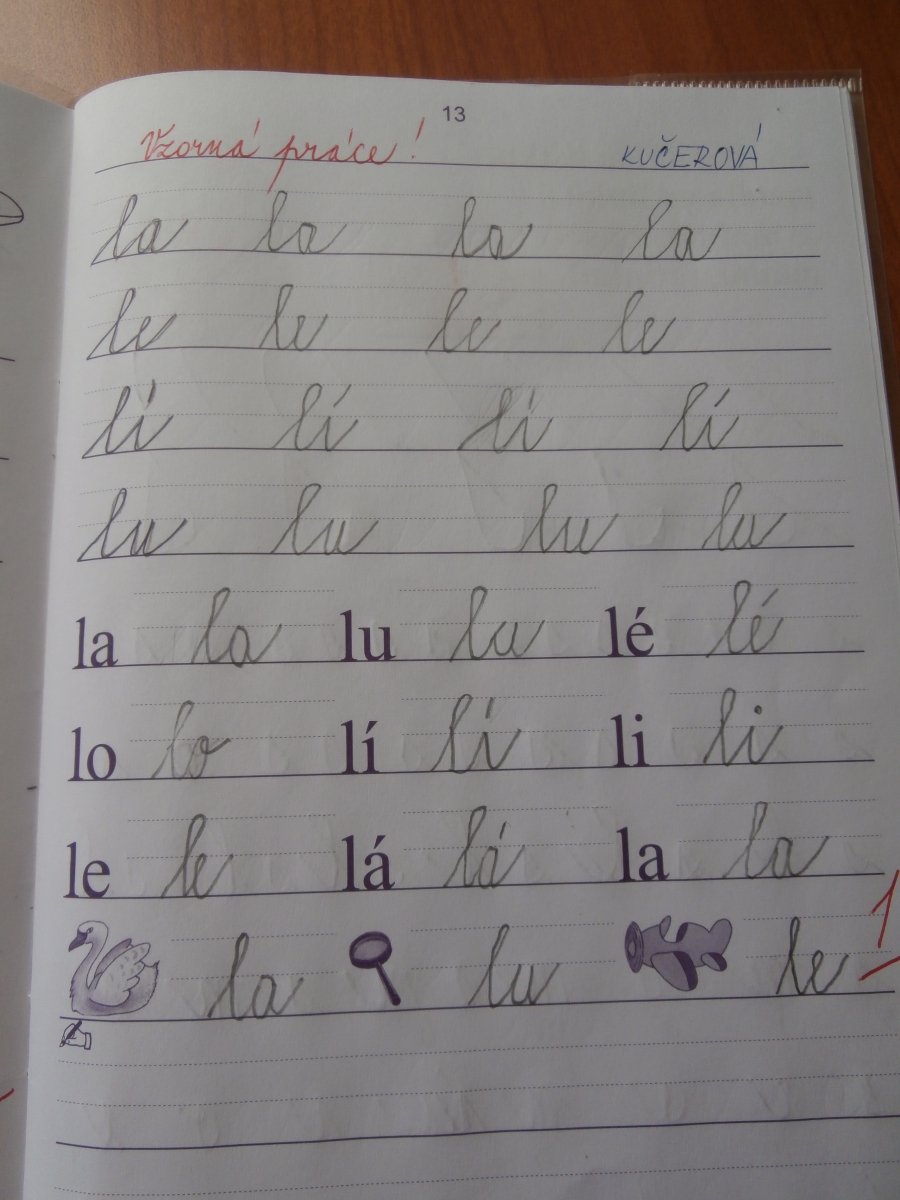 13
Vzorná práce! KUČEROVÁ
la la la la
le le le le
lí lí lí lí
lu lu lu lu
la la lu lu lé lé
lo lo lí lí li li
le le lá lá la la
la lu le 1